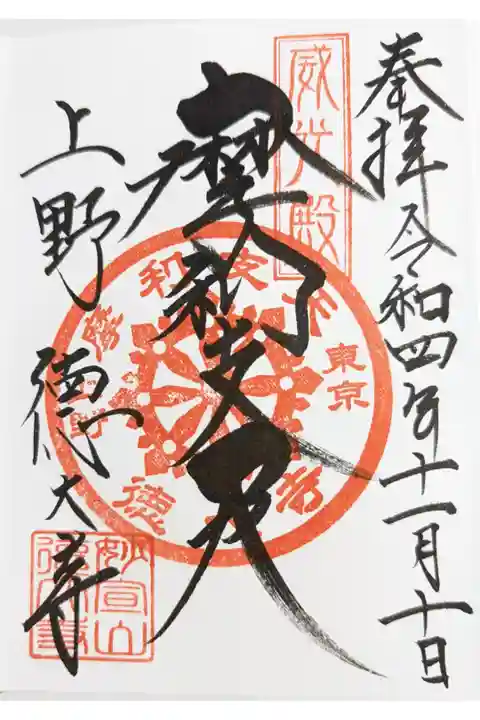 奉拝 令和四年十一月十日
威光殿
摩利支天
上野 徳大寺
東京
妙宣山
徳大寺